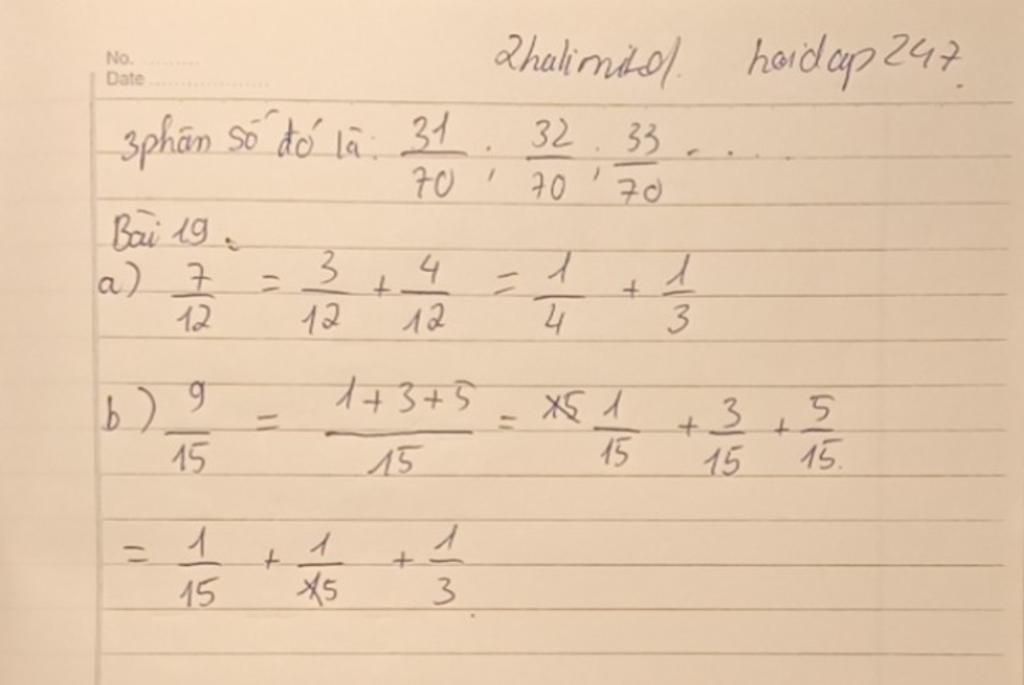 No. ..........
hoidap247.
Date ..................
3 phân số đó là: 31/70 ; 32/70 ; 33/70 . . . .
Bài 19.
a) 7/12 = 3/12 + 4/12 = 1/4 + 1/3
b) 9/15 = (1+3+5)/15 = 1/15 + 3/15 + 5/15.
= 1/15 + 1/5 + 1/3.